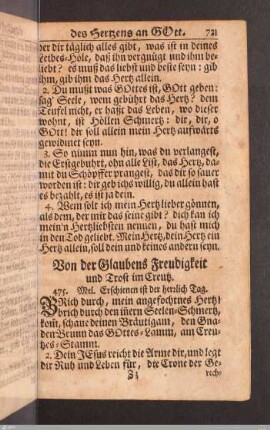 des Hertzens an GOtt. 721
der dir täglich alles gibt, was ist in deines
Leibes-Höle, daß ihn vergnügt und ihn be-
liebt? es muß das liebst und beste seyn: gib
ihm, gib ihm das Hertz allein.
2. Du must was GOttes ist, GOtt geben:
sag' Seele, wem gebührt das Hertz? dem
Teufel nicht, er haßt das Leben, wo dieser
wohnt, ist Höllen Schmertz: dir, dir, o
GOtt! dir soll allein mein Hertz aufwärts
gewidmet seyn.
3. So nimm nun hin, was du verlangest,
die Erstgebuhrt, ohn alle List, das Hertz, da-
mit du Schöpffer prangest, das dir so saur
worden ist: dir geb ichs willig, du allein hast
es bezahlt, es ist ja dein.
4. Wem solt ich mein Hertz lieber gönnen,
als dem, der mir das seine gibt? dich kan ich
mein'n Hertzliebsten nennen, du hast mich
in den Tod geliebt. Mein Hertz, dein Hertz ein
Hertz allein, soll dein und keines andern seyn.
Von der Glaubens Freudigkeit
und Trost im Creutz.
475. Mel. Erschienen ist der herrlich Tag.
BRich durch, mein angefochtnes Hertz!
brich durch den iñern Seelen-Schmertz,
kom̃, schaue deinen Bräutigam, den Gna-
den-Brunn das GOttes-Lamm, am Creu-
tzes-Stamm.
2. Dein JEsus reicht die Arme dir, und legt
dir Ruh und Leben für, die Crone der Ge-
Zz rech-